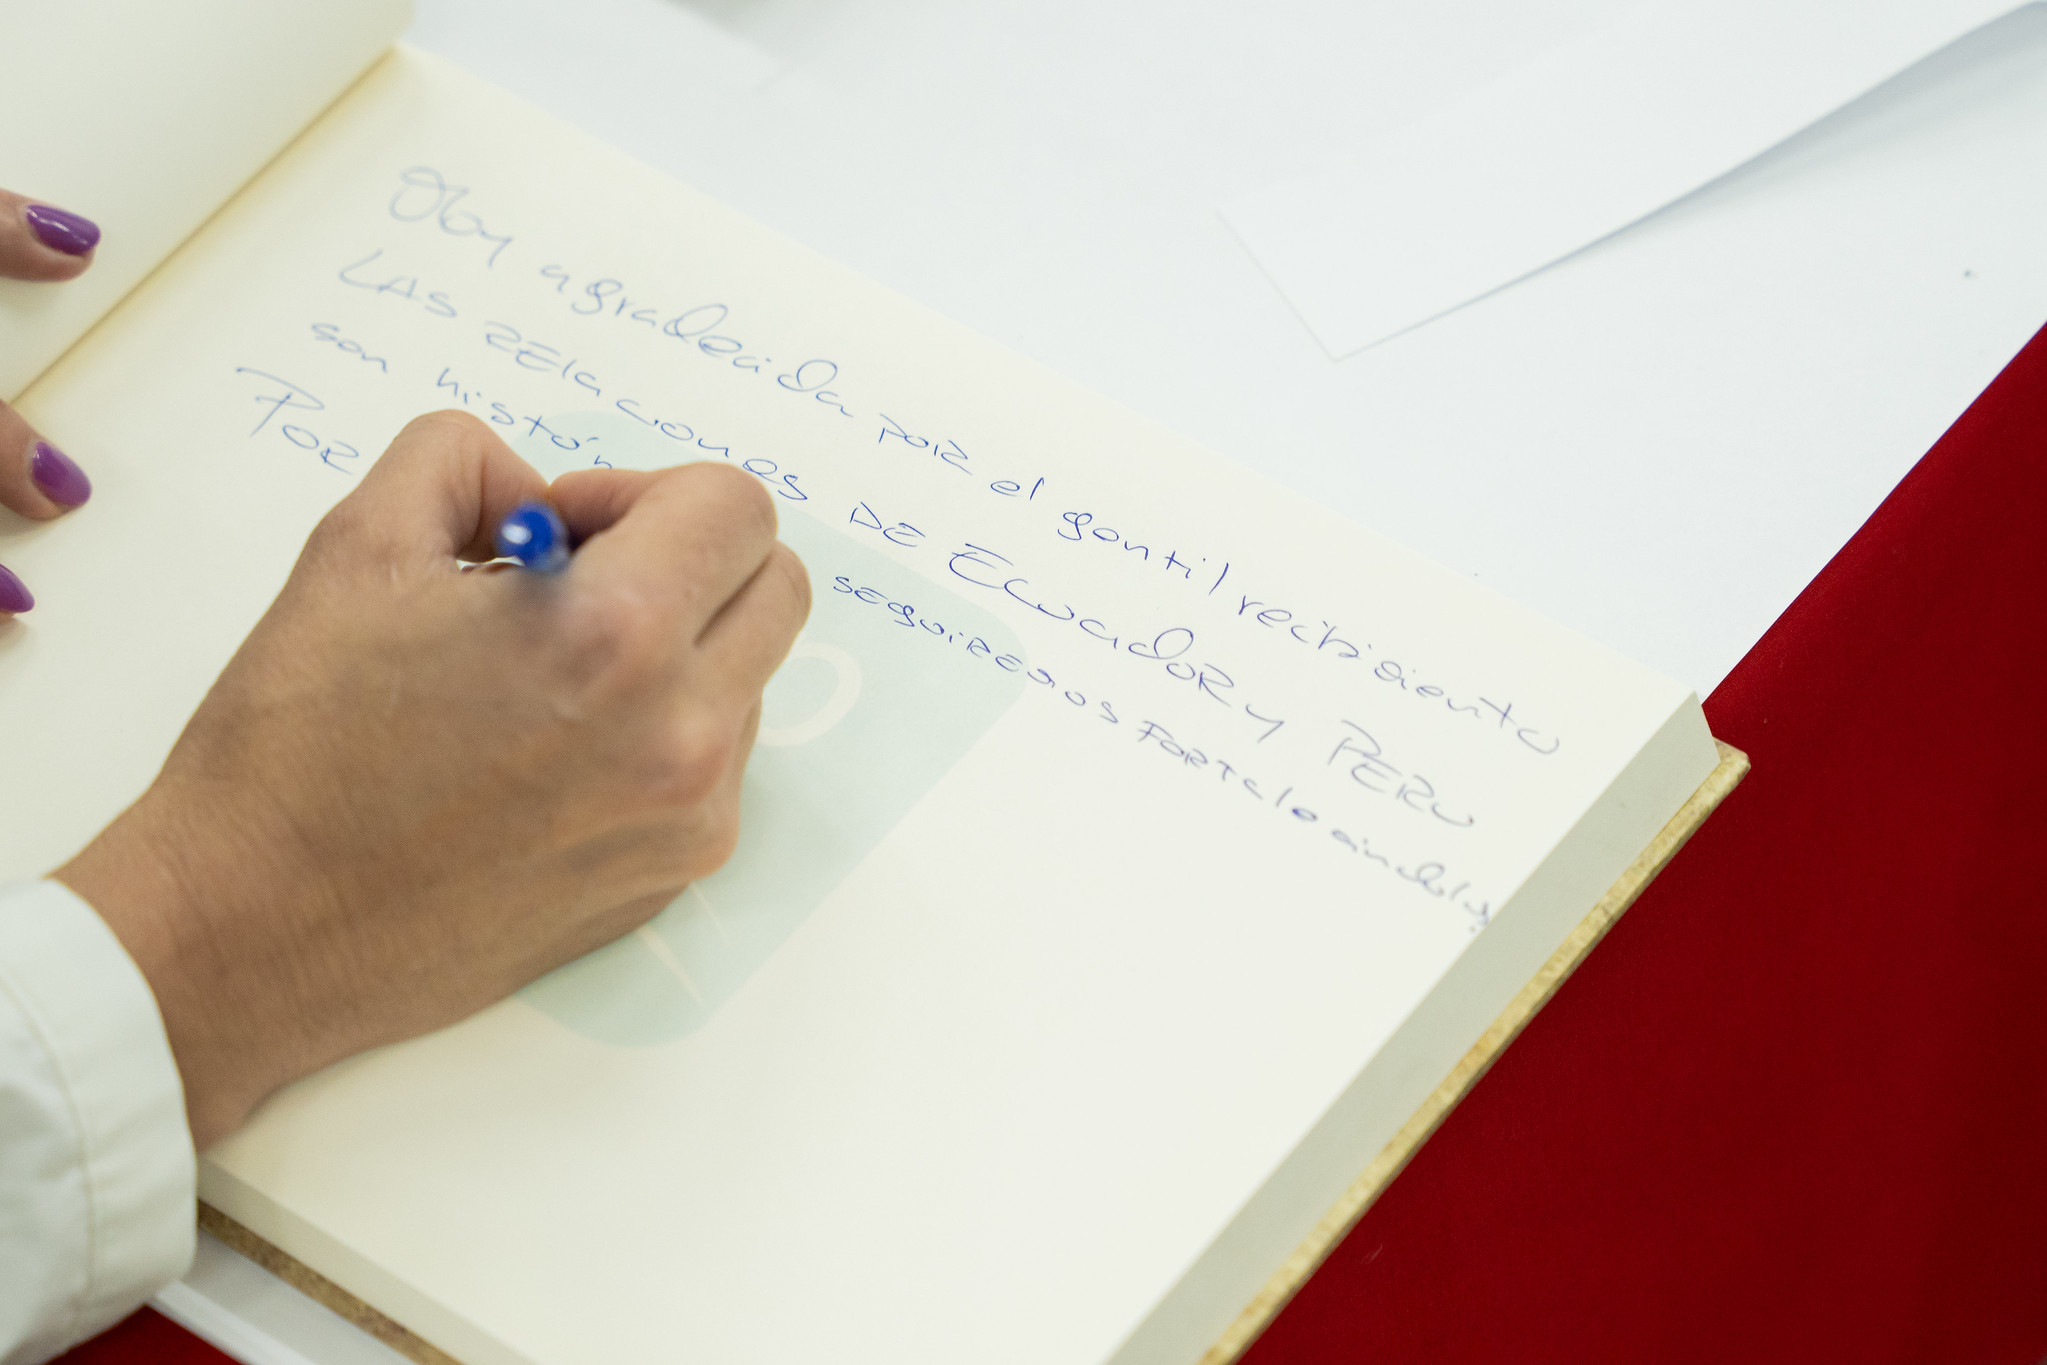 Muy agradecida por el gentil recibimiento
LAS RElaciones DE EcuadoR y PERu
son históri SEguiREmos FORTaleciendolas
PoR